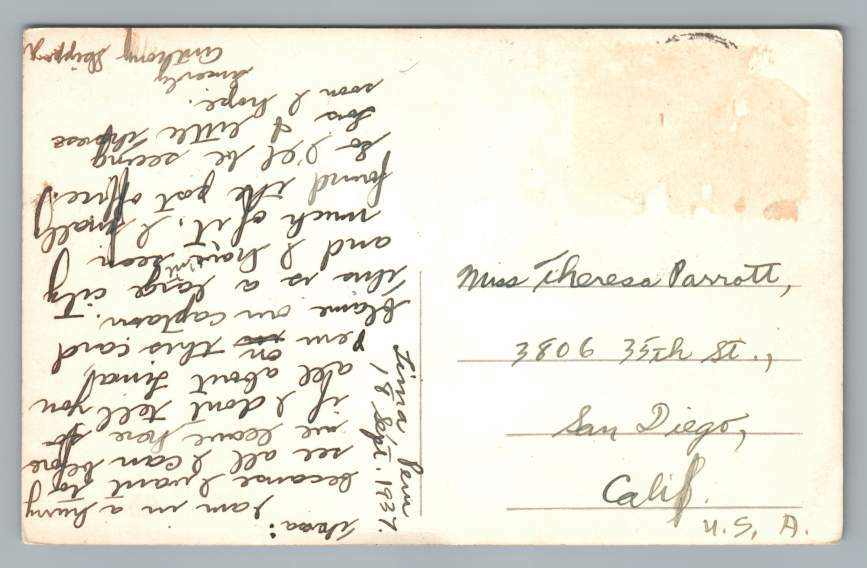 Lima Peru
18 Sept. 1937.
I am in a hurry
because I want to
see all I can before
we leave here so
if I dont tell you
all about Lima,
Peru on this card
blame our captain.
This is a large city
and I havent seen
much of it. I finally
found the post office.
So I'el be seeing
you I little
soon I hope.
Sincerly
Anthony
Miss Theresa Parrott,
3806 35th St.,
San Diego,
Calif.
U.S.A.